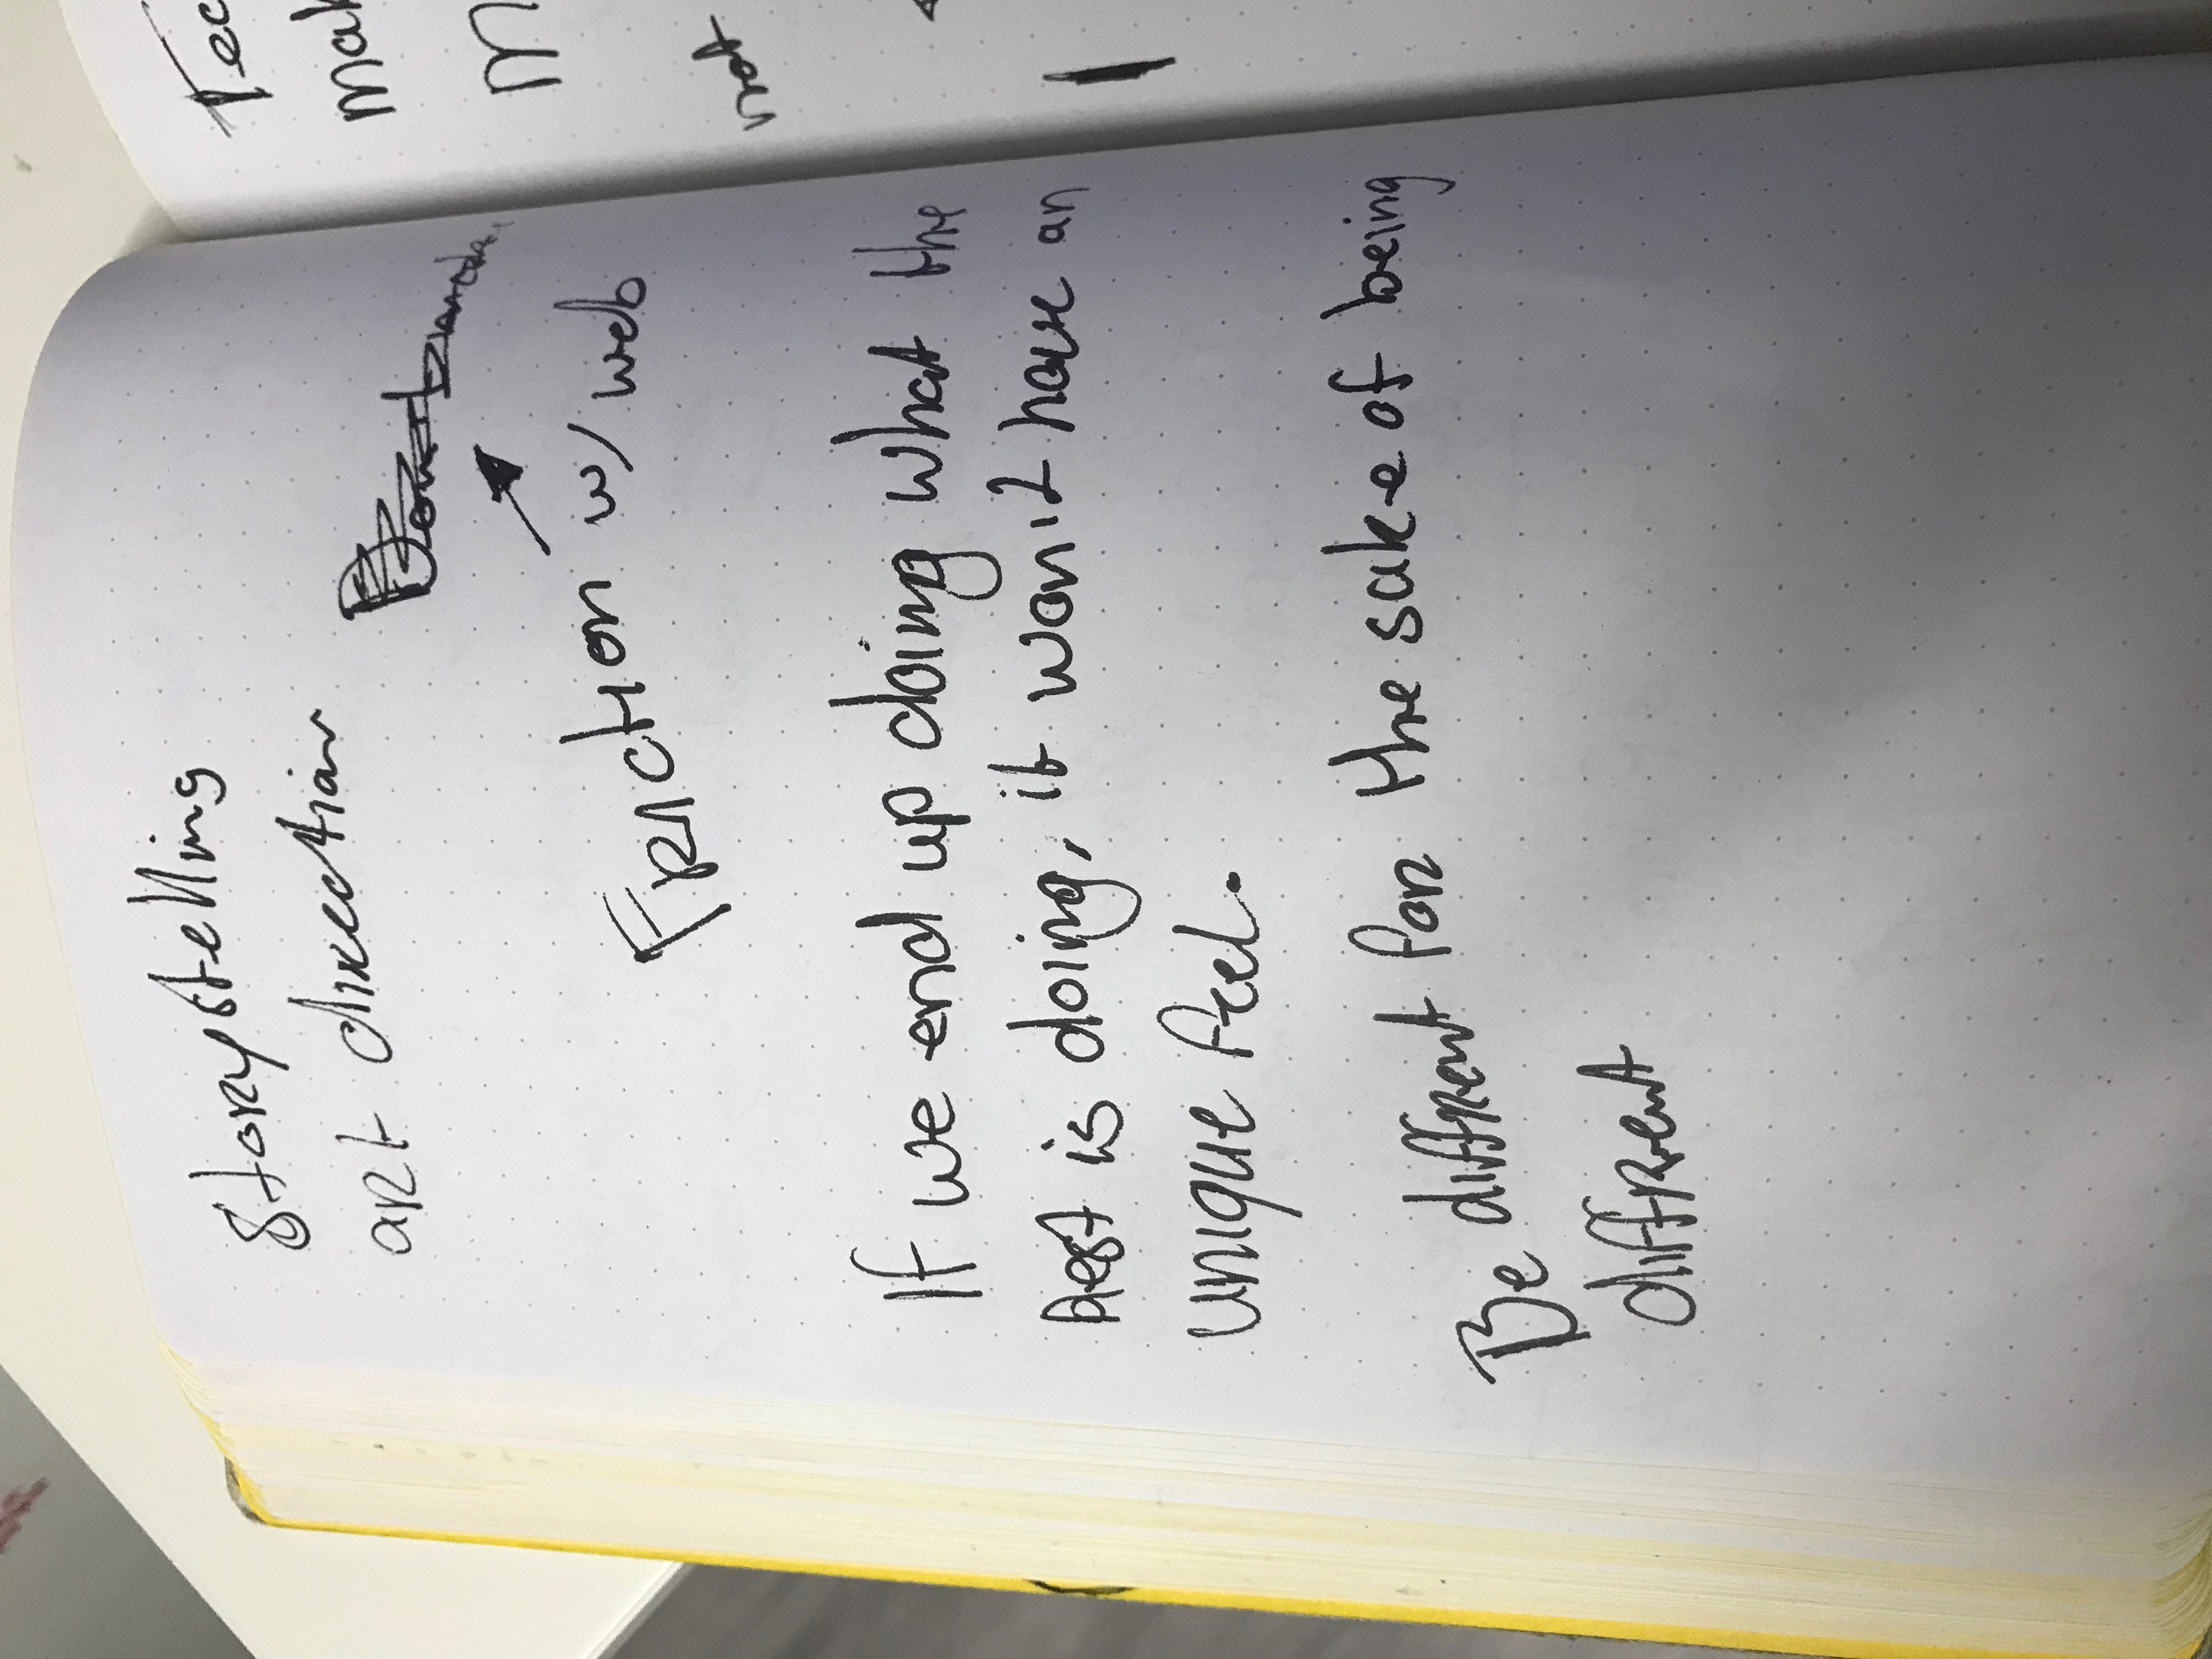 Storystelling
art direction
Friction w/ web
If we end up doing what the
Rest is doing, it won't have an
unique feel.
Be diffrent for the sake of being
diffrent
Tec
mak
M
not